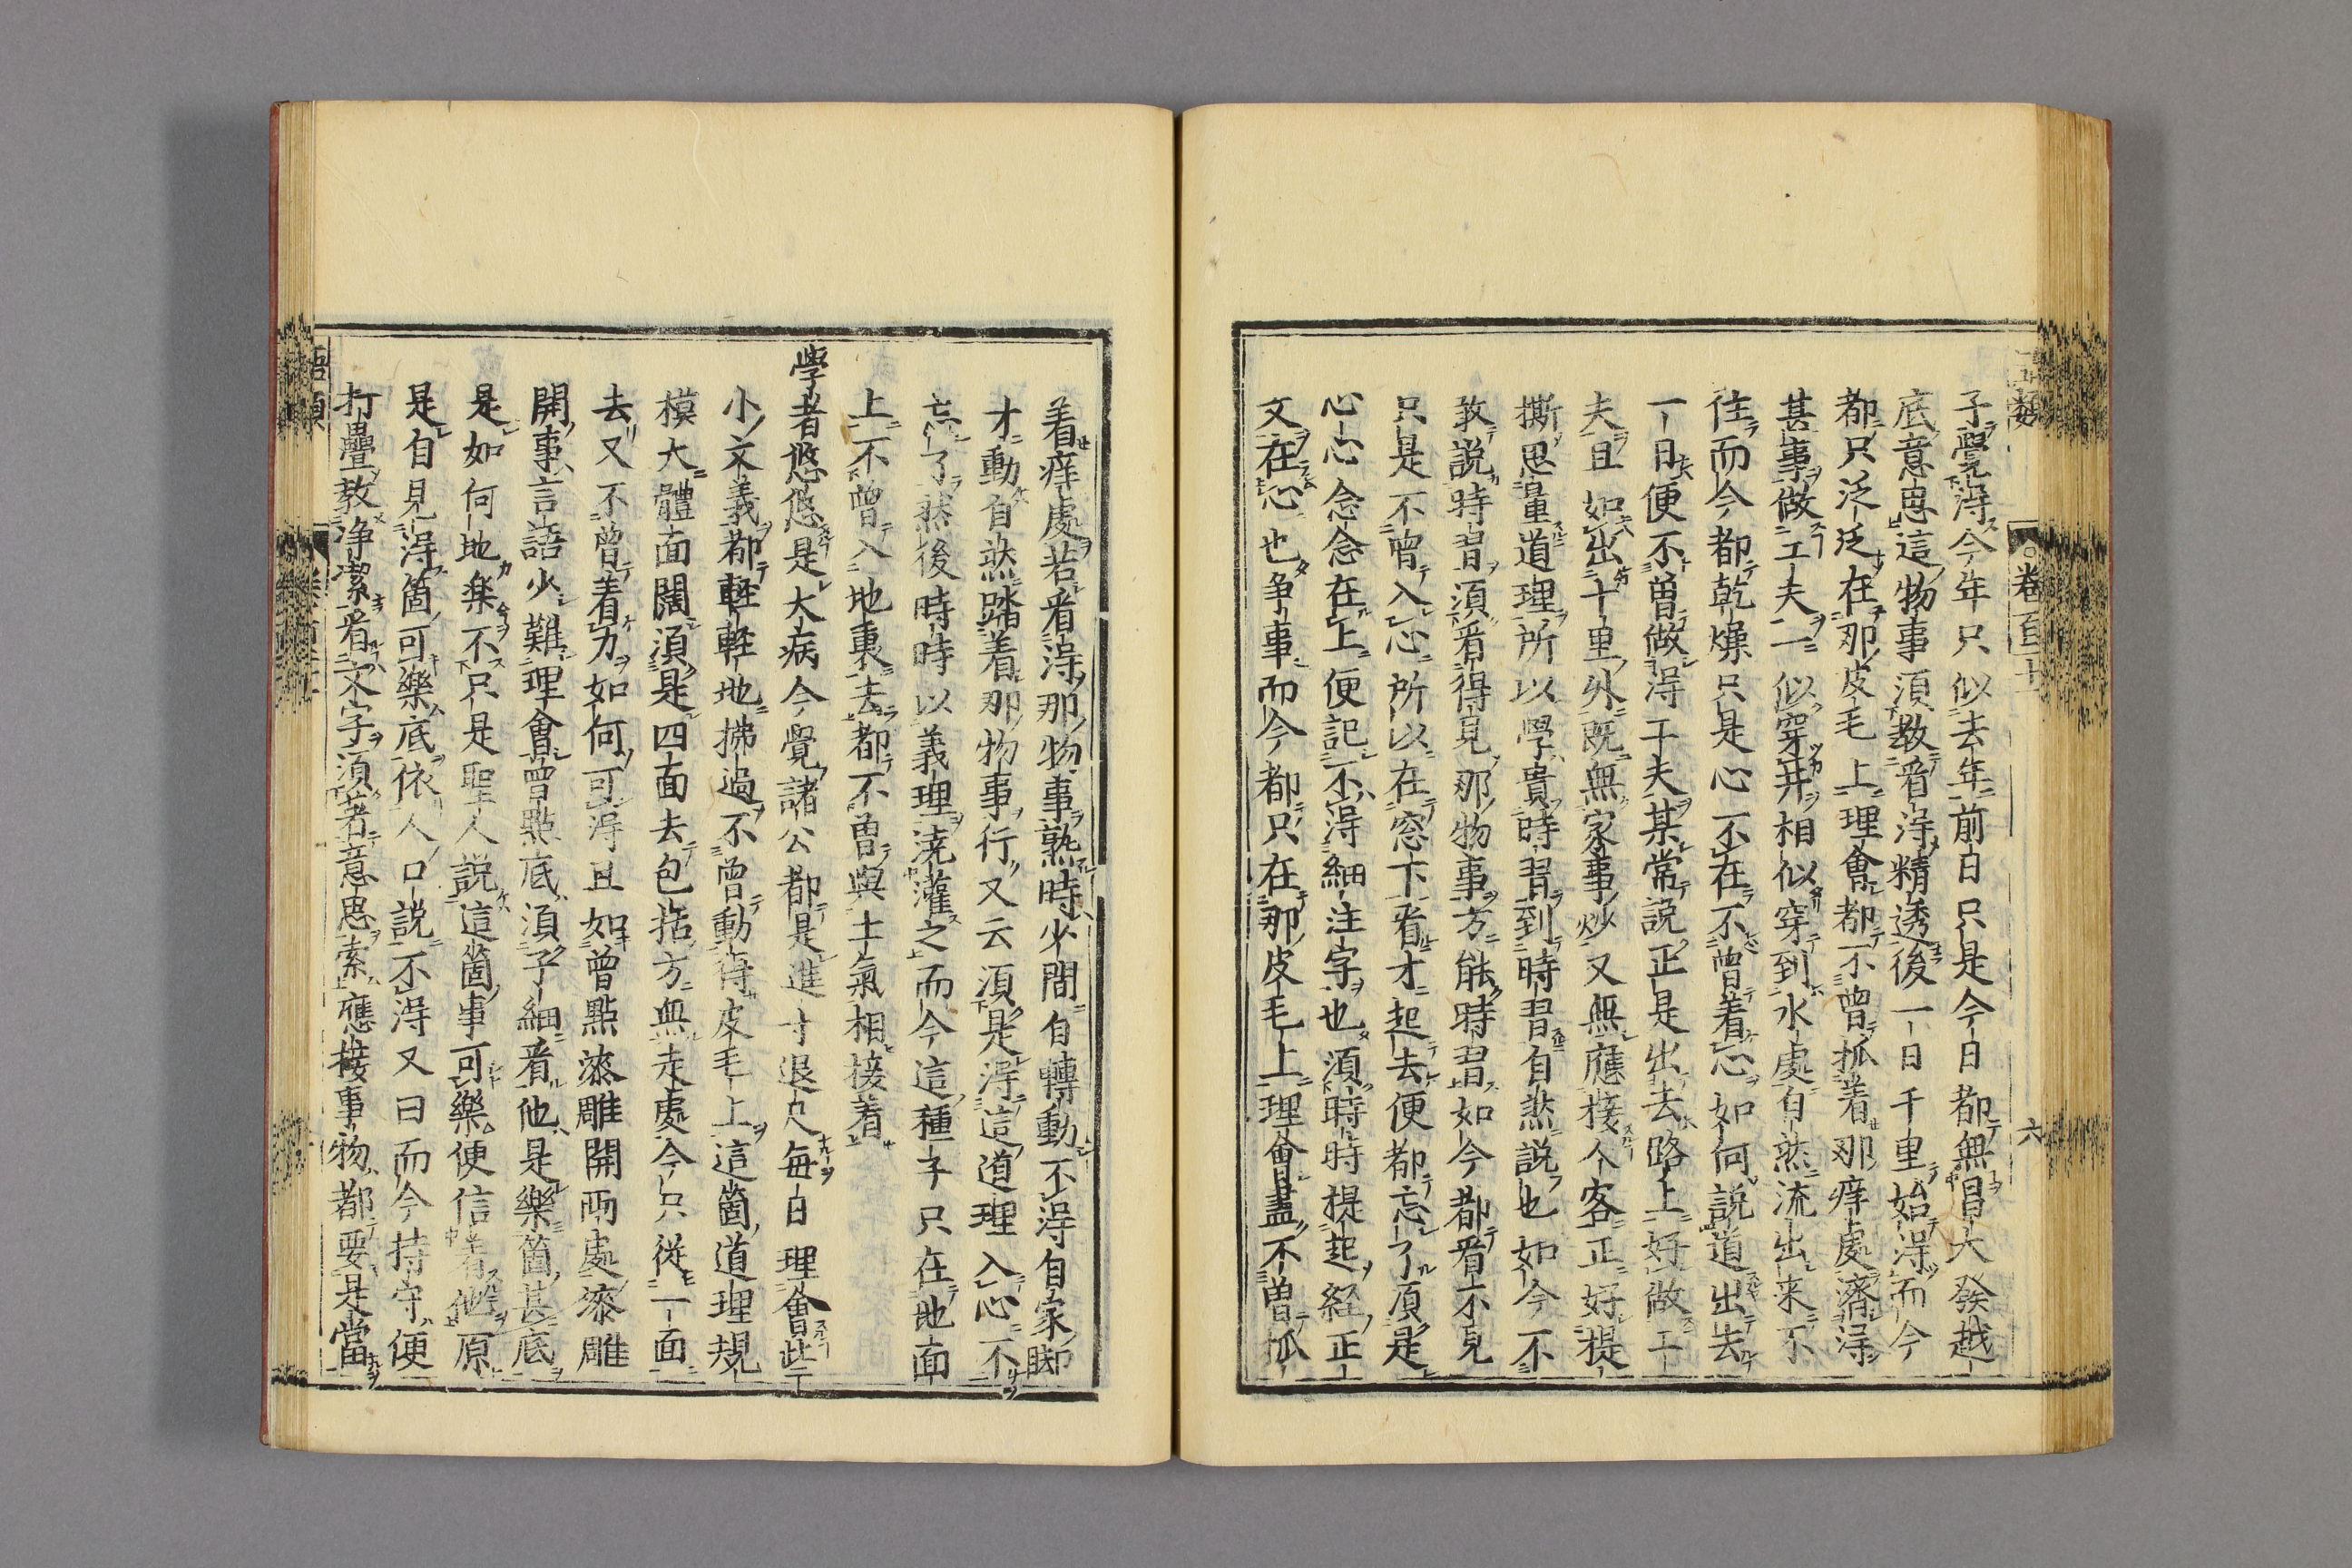 子覺得今年只似去年前日只是今日都無昌大發越
底意思這物事須教看得精透後一日千里始得而今
都只泛泛在那皮毛上理會都不曾抓着那痒處濟得
甚事做工夫一似穿井相似穿到水處自然流出来不
住而今都乾燥只是心不在不曾着心如何說道出去
一日便不曾做得工夫某常說正是出去路上好做工
夫且如出十里外既無家事炒又無應接人客正好提
撕思量道理所以學貴時習到時習自然說也如今不
敢說時習須看得見那物事方能時習如今都看不見
只是不曾入心所以在窓下看才起去便都忘了須是
心心念念在上便記不得細注字也須時時提起經正
文在心也爭事而今都只在那皮毛上理會盡不曾抓
卷百二十一
六
着痒處若看得那物事熟時少間自轉動不得自家脚
才動自然踏着那物事行又云須是得這道理入心不
忘了然後時時以義理澆灌之而今這種子只在地面
上不曾入地裏去都不曾與土氣相接着
學者悠悠是大病今覺諸公都是進寸退尺每日理會些
小文義都輕輕地拂過不曾動得皮毛上這箇道理規
模大體面闊須是四面去包括方無走處今只從一面
去又不曾着力如何可得且如曾點漆雕開兩處漆雕
開事言語少難理會曾點底須子細看他是樂箇甚底
是如何地樂不只是聖人說這箇事可樂便信着他原
是自見得箇可樂底依人口說不得又曰而今持守便
打疊教淨潔看文字須着意思索應接事物都要是當
語類